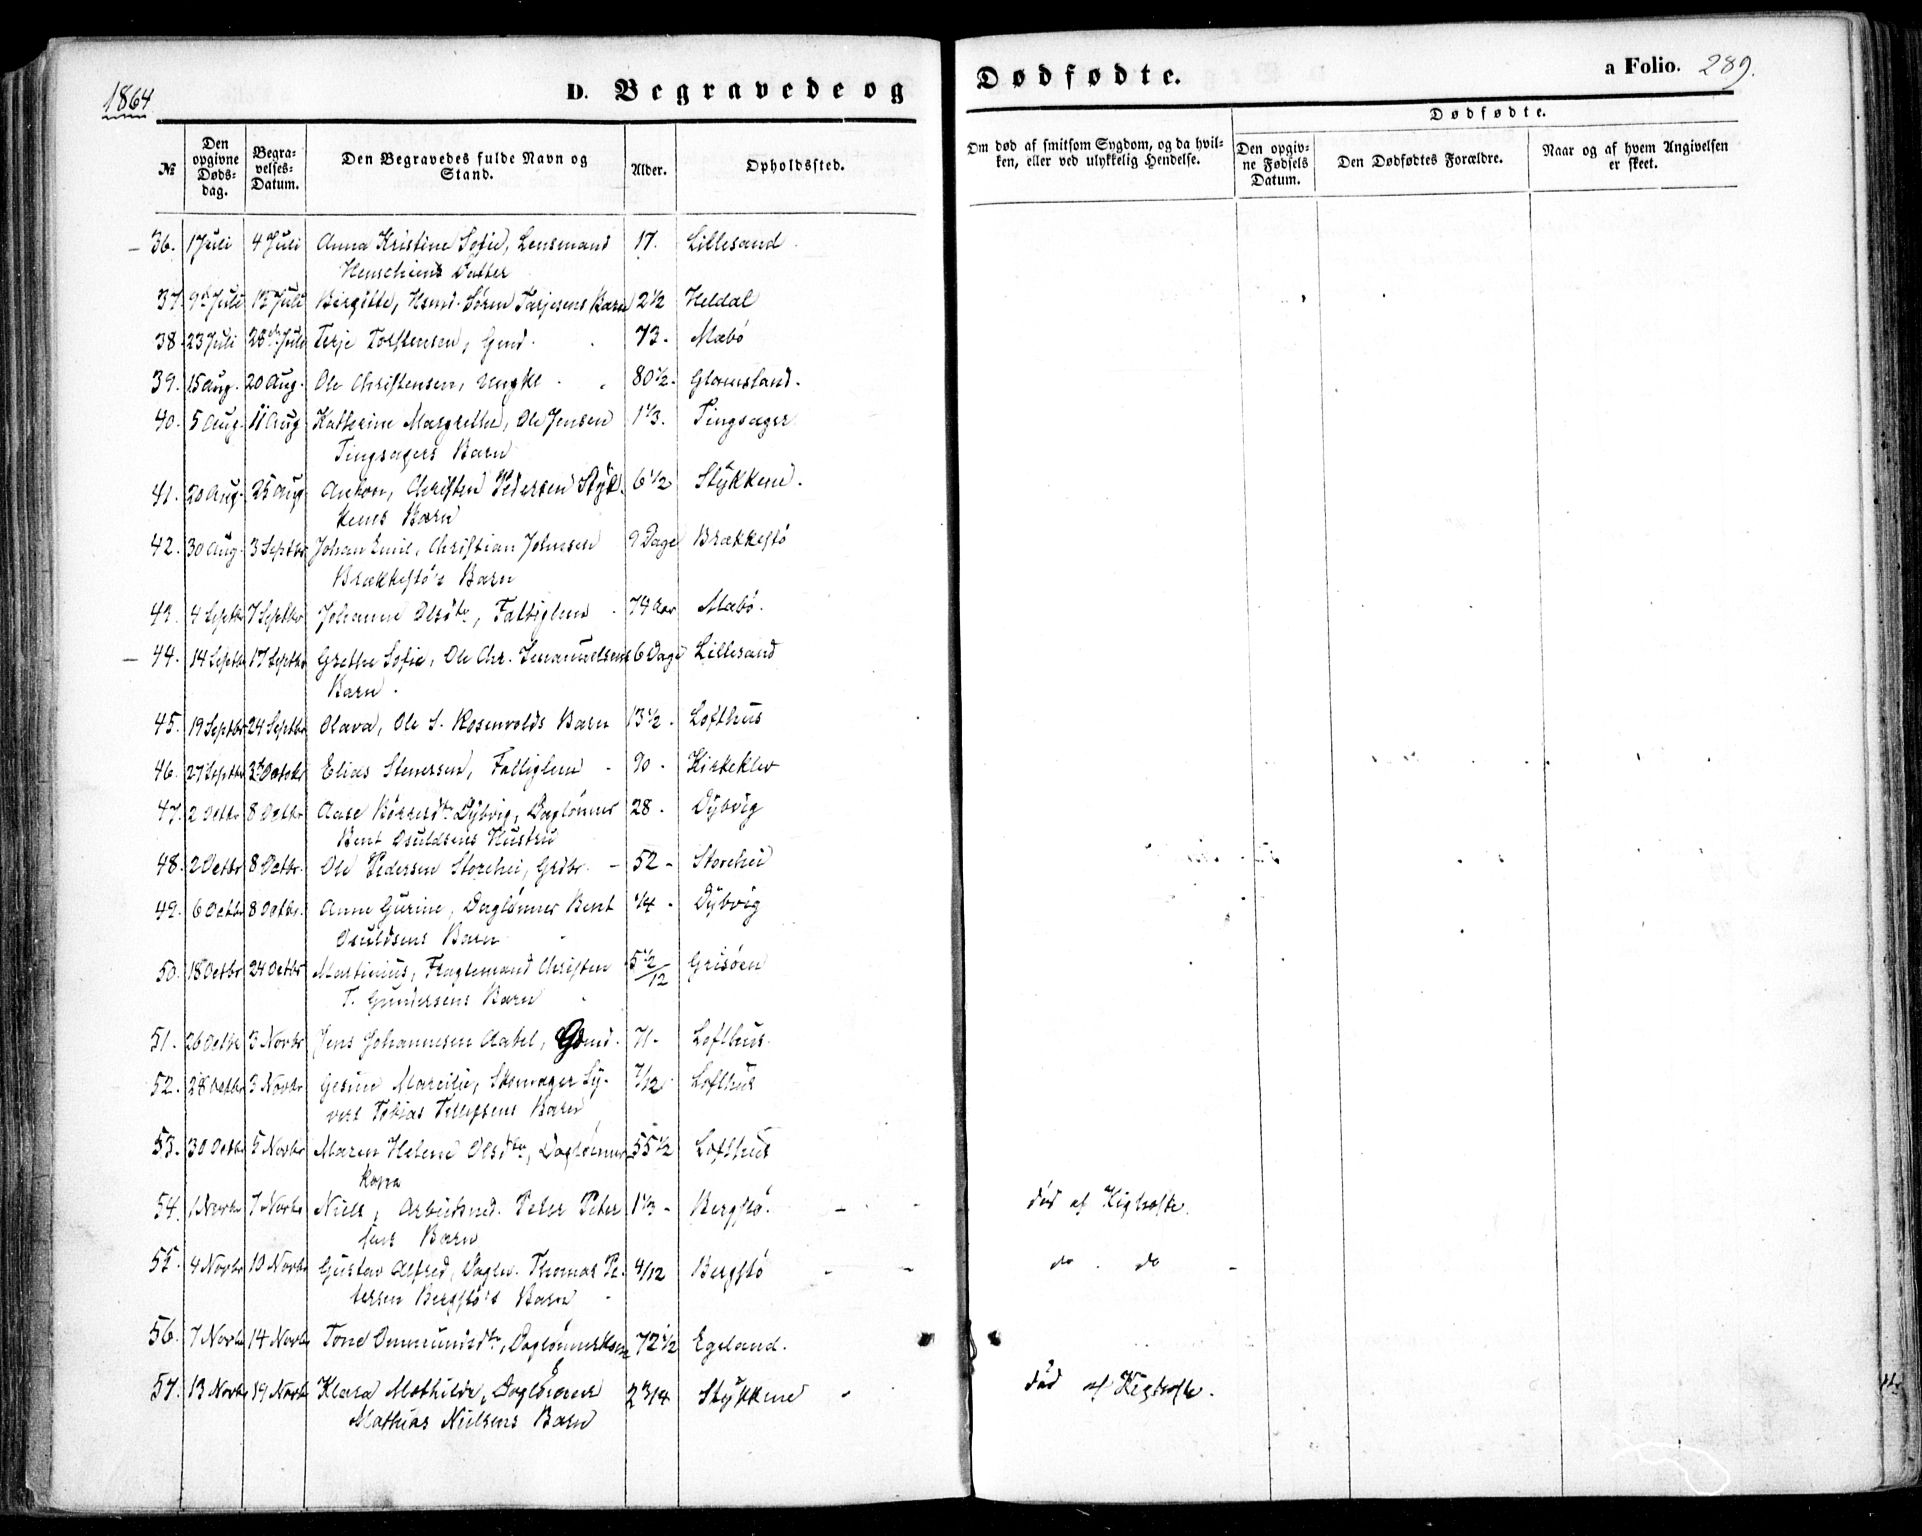 1864
D. Begravede og
Dødfødte.
a Folio. 289.
№
Den opgivne Døds-dag.
Begra-velses-Datum.
Den Begravedes fulde Navn og Stand.
Alder.
Opholdssted.
Om død af smitsom Sygdom, og da hvil-ken, eller ved ulykkelig Hendelse.
Dødfødte.
Den opgiv-ne Fødsels Datum.
Den Dødfødtes Forældre.
Naar og af hvem Angivelsen er skeet.
36. 1 Juli 4 Juli Anna Kristine Sofie, Lensmand 17. Lillesand
Henschiens Datter
37. 9 Juli 15 Juli Birgitte, Hsmd. Søren Tarjesens Barn 2½ Heldal
38. 23 Juli 28 Juli Terje Torstensen, Gmd. 73. Mæbö
39. 15 Aug. 20 Aug. Ole Christensen, Ungkl. 80½. Glamsland.
40. 5 Aug. 11 Aug Kathrine Margrethe, Ole Jensen 1⅓. Tingsager
Tingsagers Barn
41. 20 Aug. 25 Aug Anton, Christen Pedersen Styk- 6½ Stykkene.
kens Barn
42. 30 Aug. 3 Septbr Johan Emil, Christian Johnsen 9 Dage Brækkestö
Brækkestö's Barn
43. 4 Septbr 7 Septbr Johanne Olsdtr, Fattiglem 74 Aar Mæbö.
44. 14 Septbr 17 Septbr Grethe Sofie, Ole Chr. Imanuelsens 6 Dage Lillesand
Barn.
45. 19 Septbr 24 Septbr Olava, Ole S. Rosenvolds Barn 13½. Lofthus
46. 27 Septbr 3 Octobr Elias Stenersen, Fattiglem 90. Kirkeklev
47. 2 Octbr 8 Octbr Aase Börresdtr Dybvig, Daglönner 28. Dybvig
Bent Osuldsens Hustru
48. 2 Octbr 8 Octbr. Ole Pedersen Storehei, Grdbr. 52 Storehei
49. 6 Octbr 8 Octbr. Anne Gurine, Daglönner Bent ¼. Dybvig
Osuldsens Barn
50. 18 Octbr 24 Octbr Martinius, Fragtemand Christen 5½/12 Grisöen
T. Gundersens Barn
51. 26 Octbr 3 Novbr Jens Johannesen Aabel, Gdmd. 71. Lofthus.
52. 28 Octbr 3 Novbr Gesine Marcilie, Skomager Sy- 7/12 Lofthus
vert Tobias Tellefsens Barn
53. 30 Octbr 5 Novbr Maren Helene Olsdtr, Daglönner 55½ Lofthus
kone
54. 1 Novbr 7 Novbr Niels, Arbeidsmd. Peter Peter 1⅓ Bergstö. död af Kighoste.
sens Barn
55. 4 Novbr 10 Novbr Gustav Alfred, Daglr. Thomas Pe- 4/12 Bergstö do. do
tersen Bergstö's Barn
56. 7 Novbr 14 Novbr Tone Ommundsdtr, Daglönnerkone 72½ Egeland.
57. 13 Novbr 19 Novbr Klara Mathilde, Daglönner 2¾ Stykkene död af Kighoste.
Mathias Nielsens Barn